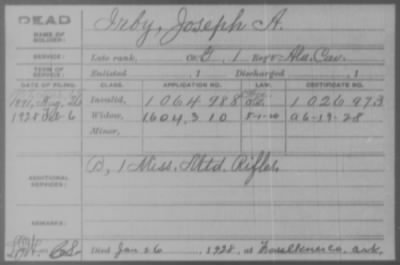 DEAD
NAME OF SOLDIER: Irby, Joseph A.
SERVICE: Late rank, Co. G, 1 Reg't Ala. Cav.
TERM OF SERVICE: Enlisted , 1 Discharged , 1
DATE OF FILING. CLASS. APPLICATION NO. LAW. CERTIFICATE NO.
1891, Aug. Invalid, 1064988 1026973
1928 Feb 6 Widow, 1604310 8-1-28
Minor,
ADDITIONAL SERVICES: D, 1 Miss. Mtd. Rifles
REMARKS:
Died Jan 26, 1928, at Faulkner co. Ark.